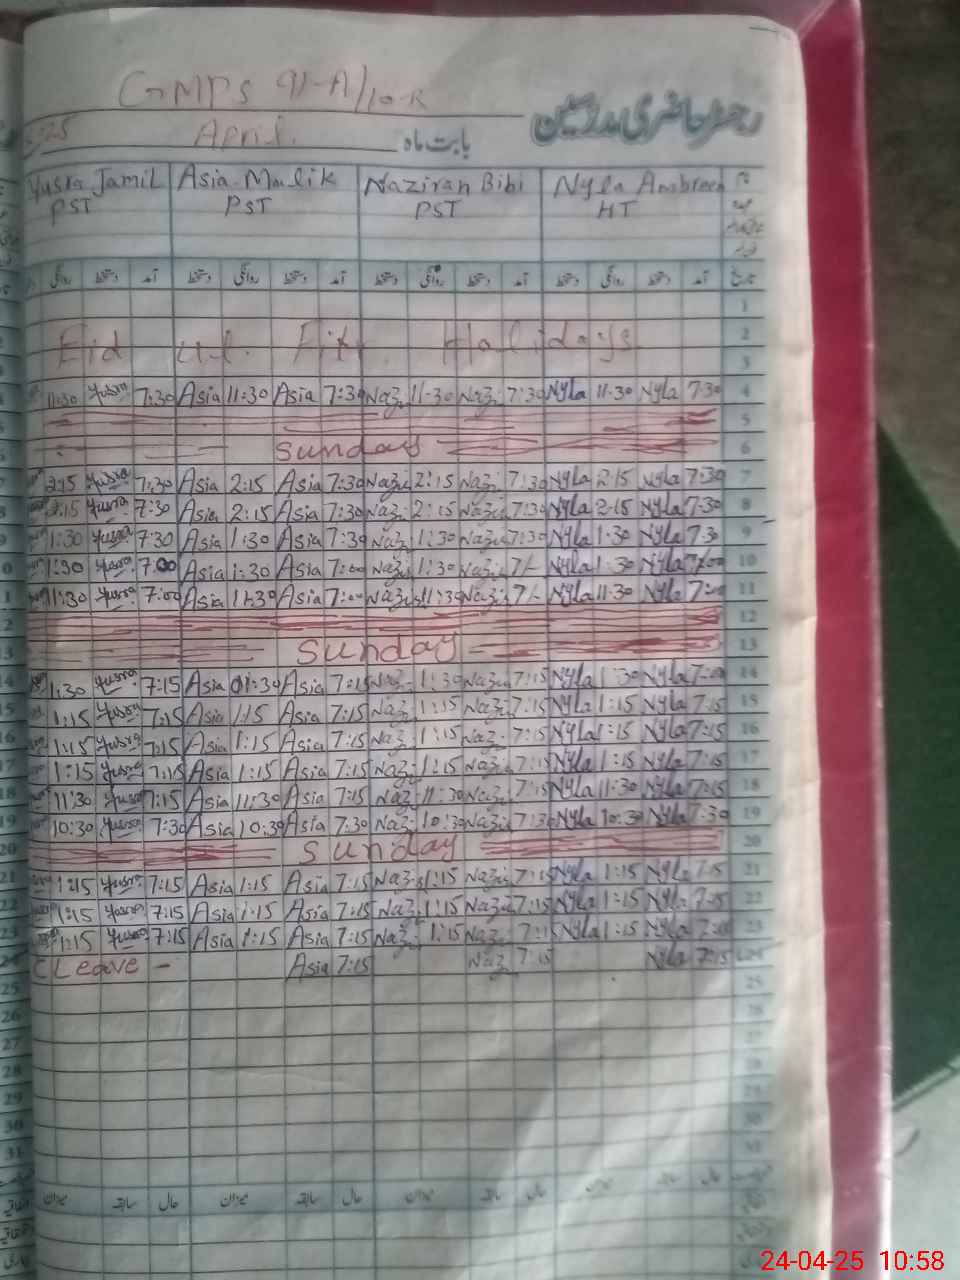 GMPS 91-A/10-R
رجسٹر حاضری مدرسین
April. بابت ماہ
Yusra Jamil Asia Malik Naziran Bibi Nyla Ambreen
PST PST PST HT
روانگی دستخط آمد دستخط روانگی دستخط آمد دستخط روانگی دستخط آمد دستخط روانگی دستخط آمد تاریخ
1
2
Eid ul. Fitr Holidays
3
11:30 Yusra 7:30 Asia 11:30 Asia 7:30 Naz 11-30 Naz 7:30 Nyla 11-30 Nyla 7-30 4
5
Sunday 6
2:15 Yusra 7:30 Asia 2:15 Asia 7:30 Naz 2:15 Naz 7:30 Nyla 2-15 Nyla 7-30 7
2:15 Yusra 7:30 Asia 2:15 Asia 7:30 Naz 2:15 Naz 7:30 Nyla 2-15 Nyla 7-30 8
1:30 Yusra 7:30 Asia 1:30 Asia 7:30 Naz 1:30 Naz 7:30 Nyla 1:30 Nyla 7:30 9
1:30 Yusra 7:00 Asia 1:30 Asia 7:00 Naz 1:30 Naz 7/- Nyla 1:30 Nyla 7:00 10
11:30 Yusra 7:00 Asia 11:30 Asia 7:00 Naz 11:30 Naz 7/- Nyla 11:30 Nyla 7:00 11
12
Sunday 13
1:30 Yusra 7:15 Asia 01:30 Asia 7:15 Naz 1:30 Naz 7:15 Nyla 1:30 Nyla 14
1:15 Yusra 7:15 Asia 1:15 Asia 7:15 Naz 1:15 Naz 7:15 Nyla 1:15 Nyla 7:15 15
1:15 Yusra 7:15 Asia 1:15 Asia 7:15 Naz 1:15 Naz 7:15 Nyla 1:15 Nyla 7:15 16
1:15 Yusra 7:15 Asia 1:15 Asia 7:15 Naz 1:15 Naz 7:15 Nyla 1:15 Nyla 7:15 17
11:30 Yusra 7:15 Asia 11:30 Asia 7:15 Naz 11:30 Naz 7:15 Nyla 11-30 Nyla 7:15 18
10:30 Yusra 7:30 Asia 10:30 Asia 7:30 Naz 10:30 Naz 7:30 Nyla 10:30 Nyla 7-30 19
Sunday 20
1:15 Yusra 7:15 Asia 1:15 Asia 7:15 Naz 1:15 Naz 7:15 Nyla 1:15 Nyla 7-15 21
1:15 Yusra 7:15 Asia 1:15 Asia 7:15 Naz 1:15 Naz 7:15 Nyla 1:15 Nyla 7:15 22
1:15 Yusra 7:15 Asia 1:15 Asia 7:15 Naz 1:15 Naz 7:15 Nyla 1:15 Nyla 23
C Leave - Asia 7:15 Naz 7:15 Nyla 7:15 24
25 25
26 26
27 27
28 28
29 29
30 30
31 31
میزان سابقہ حال میزان سابقہ حال میزان سابقہ حال میزان سابقہ حال
24-04-25 10:58